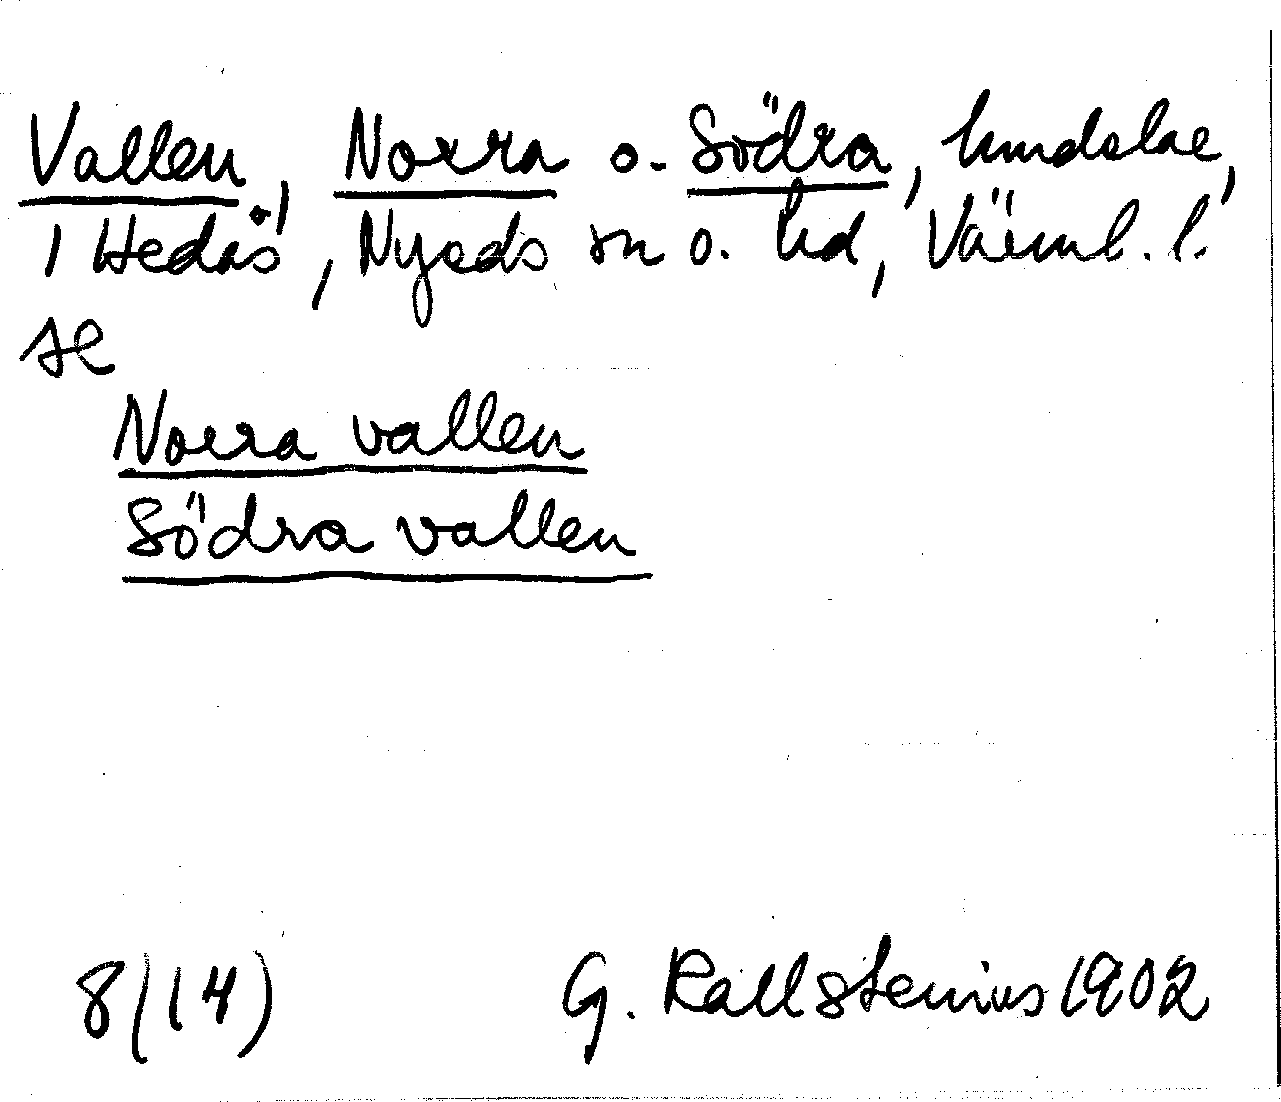 Vallen, Norra o. Södra, hmdelar,
i Hedås, Nyeds sn o. hd, Värml. l.
se
Norra vallen
Södra vallen
8(14) G. Kallstenius 1902